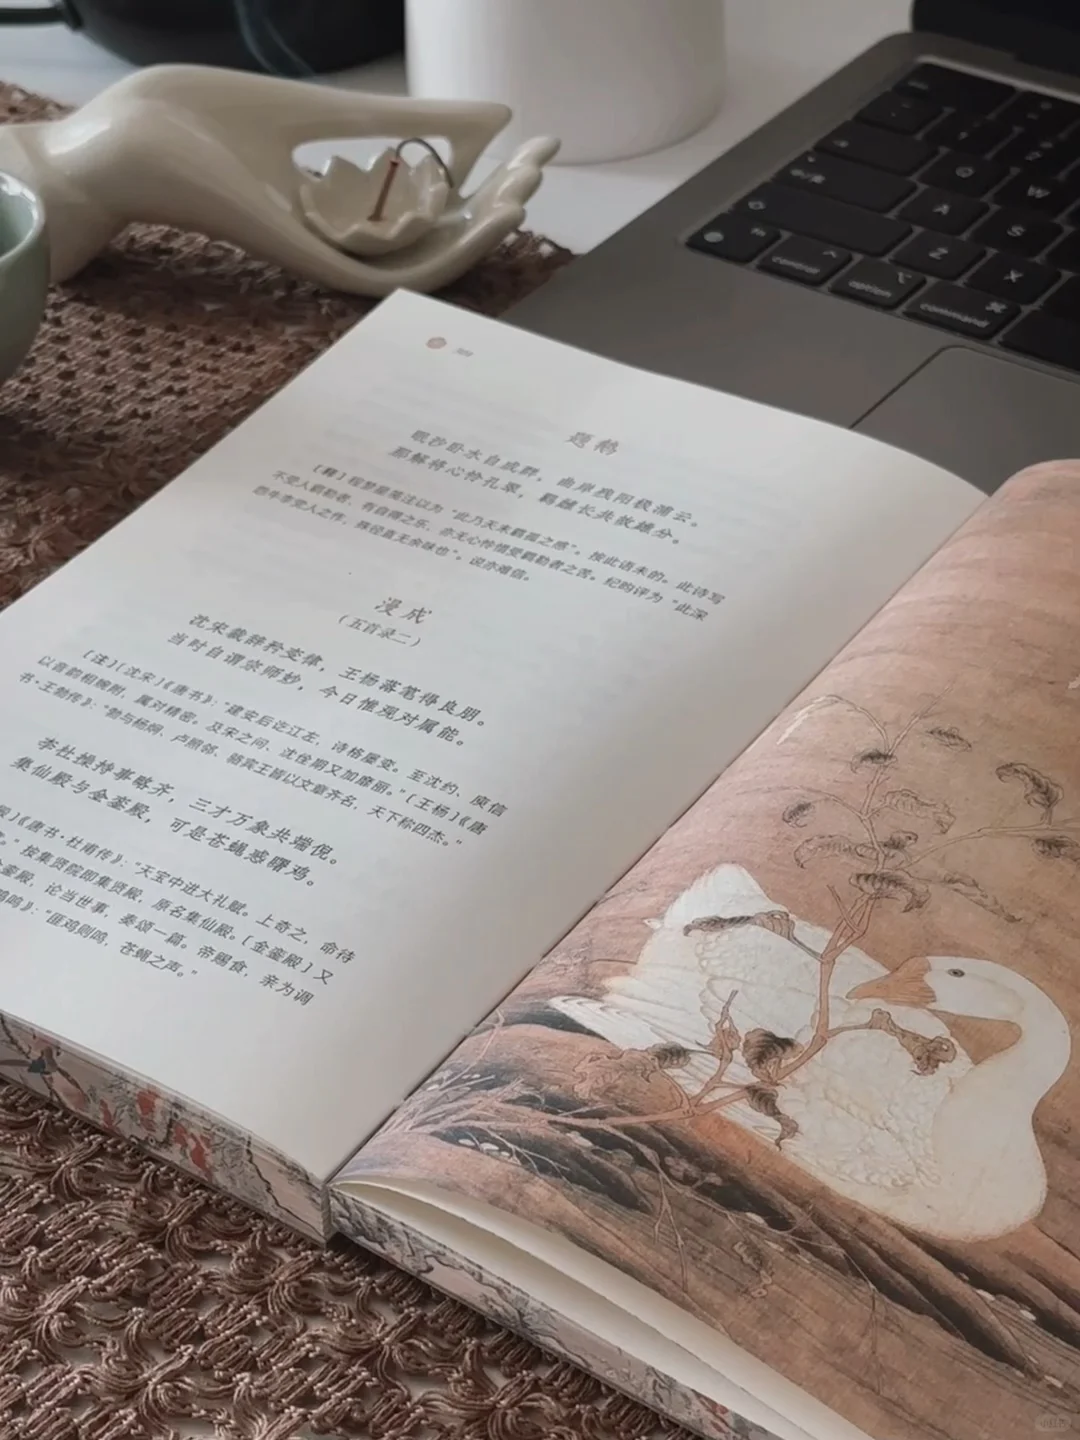 题鹅
眠沙卧水自成群，曲岸残阳极浦云。
那解将心怜孔翠，羁雌长共故雄分。
〔释〕程梦星笺注以为“此乃天末羁孤之感”。按此语未的。此诗写
不受人羁勒者，有自得之乐，亦无心怜惜受羁勒者之苦。纪昀评为“此深
西牛李党人之作，
径直无余味也”。说亦难信。
漫成
（五首录二）
沈宋裁辞矜变律，王杨落笔得良朋。
当时自谓宗师妙，今日惟观对属能。
〔注〕〔沈宋〕《唐书》：“建安后讫江左，诗格屡变。至沈约、庾信
以音韵相婉附，属对精密。及宋之问、沈佺期又加靡丽。”〔王杨〕《唐
书·王勃传》：“勃与杨炯、卢照邻、骆宾王皆以文章齐名，天下称四杰。”
李杜操持事略齐，三才万象共端倪。
集仙殿与金銮殿，可是苍蝇惑曙鸡。
殿〕《唐书·杜甫传》：“天宝中进大礼赋。上奇之，命待
。”按集贤院即集贤殿，原名集仙殿。〔金銮殿〕又
金銮殿，论当世事，奏颂一篇。帝赐食，亲为调
鸡鸣》：“匪鸡则鸣，苍蝇之声。”
Q
W
A
S
Z
X
control
option
command